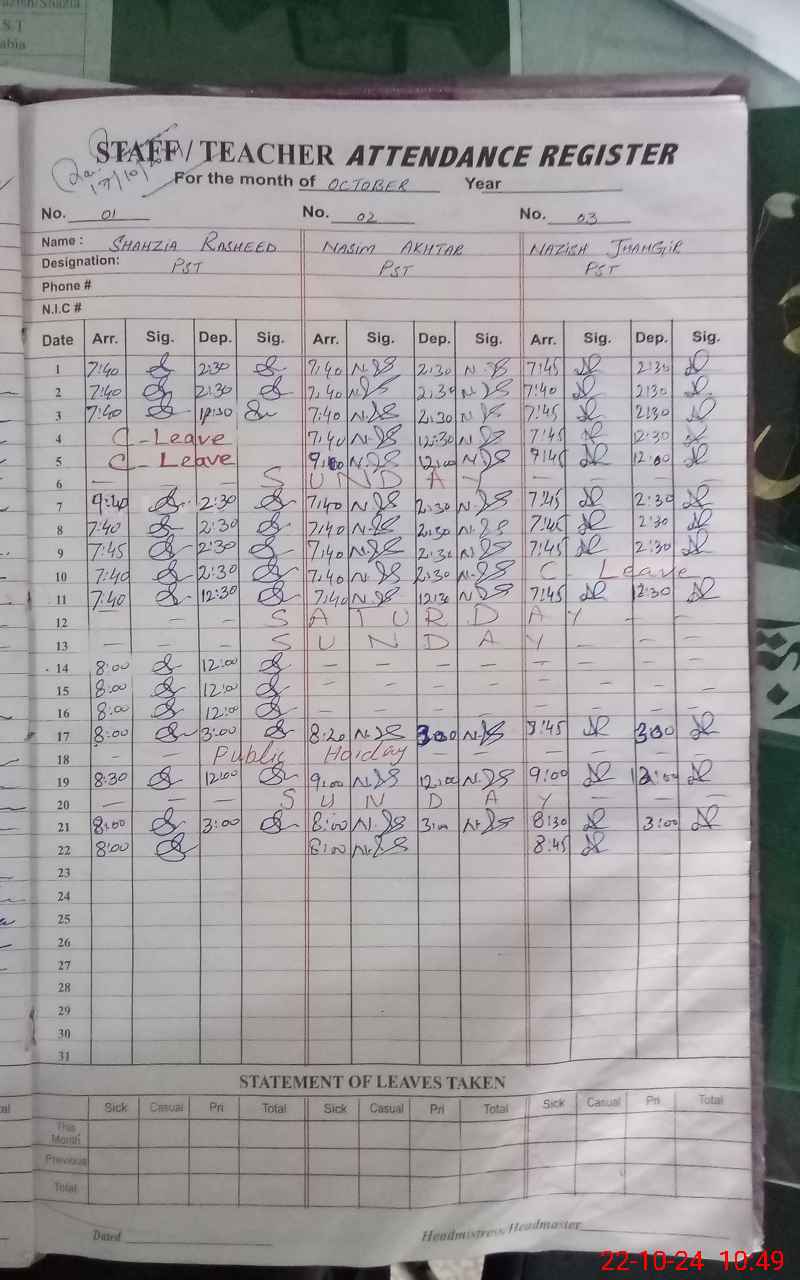 S.T
STAFF/ TEACHER ATTENDANCE REGISTER
17/10/
For the month of OCTOBER Year
No. 01 No. 02 No. 03
Name : SHAHZIA RASHEED NASIM AKHTAR NAZISH JHANGIR
Designation: PST PST PST
Phone #
N.I.C #
Date Arr. Sig. Dep. Sig. Arr. Sig. Dep. Sig. Arr. Sig. Dep. Sig.
1 7:40 2:30 7:40 2:30 7:45 2:30
2 7:40 2:30 7:40 2:30 7:40 2:30
3 7:40 7:40 2:30 7:45 2:30
4 C-Leave 7:40 12:30 7:45 12:30
5 C-Leave 12:00 12:00
6 — — — S U N D A Y — — —
7 2:30 7:40 2:30 7:45 2:30
8 7:40 2:30 7:40 2:30 7:45 2:30
9 7:45 2:30 7:40 2:30 7:45 2:30
10 7:40 2:30 7:40 2:30 C- Leave
11 7:40 12:30 7:40 12:30 7:45 12:30
12 — — — S A T U R D A Y — —
13 — — S U N D A Y — — —
14 8:00 12:00 — — — — — — — —
15 8:00 12:00 — — — — — — — —
16 8:00 12:00 — — — — — — — —
17 8:00 3:00 8:20 3:00 3:00
18 — — Public Hoiday — — — — — —
19 8:30 12:00 9:00 12:00 9:00 12:00
20 — — — S U N D A Y — — —
21 8:00 3:00 8:00 3:00 8:30 3:00
22 8:00 8:00 8:45
23
24
25
26
27
28
29
30
31
STATEMENT OF LEAVES TAKEN
Sick Casual Pri Total Sick Casual Pri Total Sick Casual Pri Total
This Month
Previous
Total
Dated Headmistress/Headmaster
22-10-24 10:49